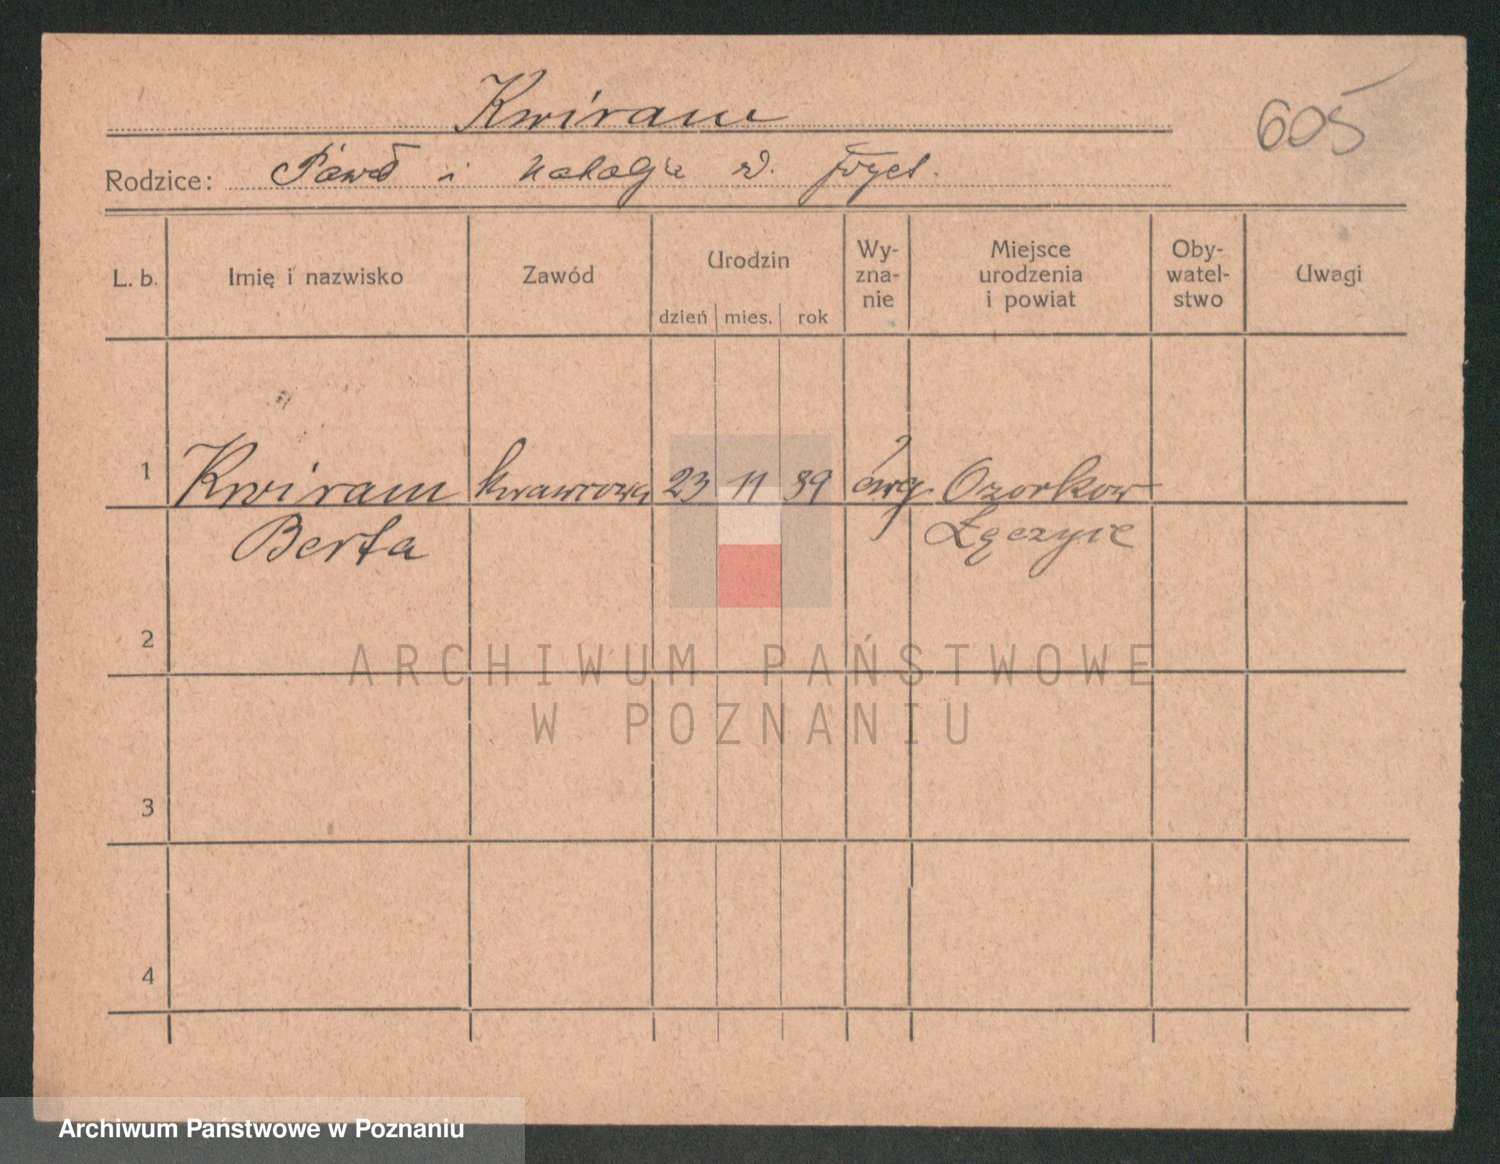 605
Kwiram
Rodzice: Paweł i Natalja
L. b. Imię i nazwisko Zawód Urodzin Wy-
zna-
nie Miejsce
urodzenia
i powiat Oby-
watel-
stwo Uwagi
dzień mies. rok
1 Kwiram krawcowa 23 11 89 ewg. Ozorkow
Berta Łęczyce
2
3
4
ARCHIWUM PAŃSTWOWE
W POZNANIU
Archiwum Państwowe w Poznaniu